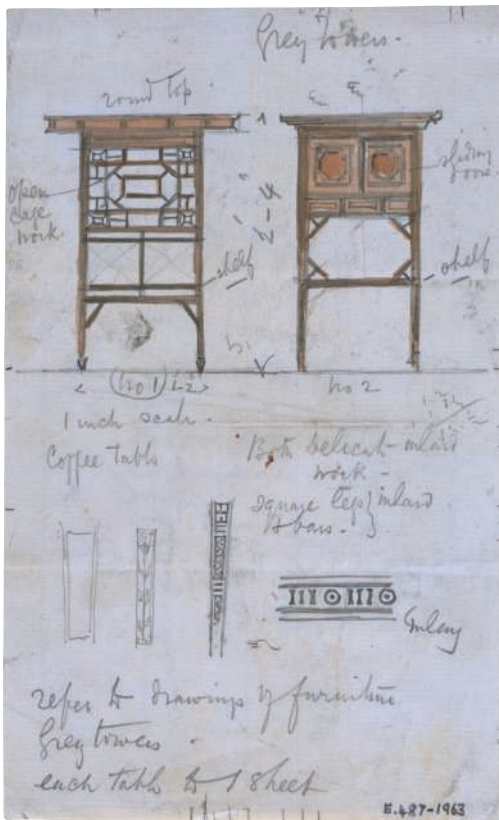 Grey Towers.
round top
open
cage
work
sliding
doors
2-4
shelf
shelf
no 1 1-2
no 2
1 inch scale.
Coffee table
Both delicate inlaid
work -
square legs } inlaid
& bars. }
Inlay
refer to drawings of furniture
Grey towers
each table to 1 sheet
E.487-1963